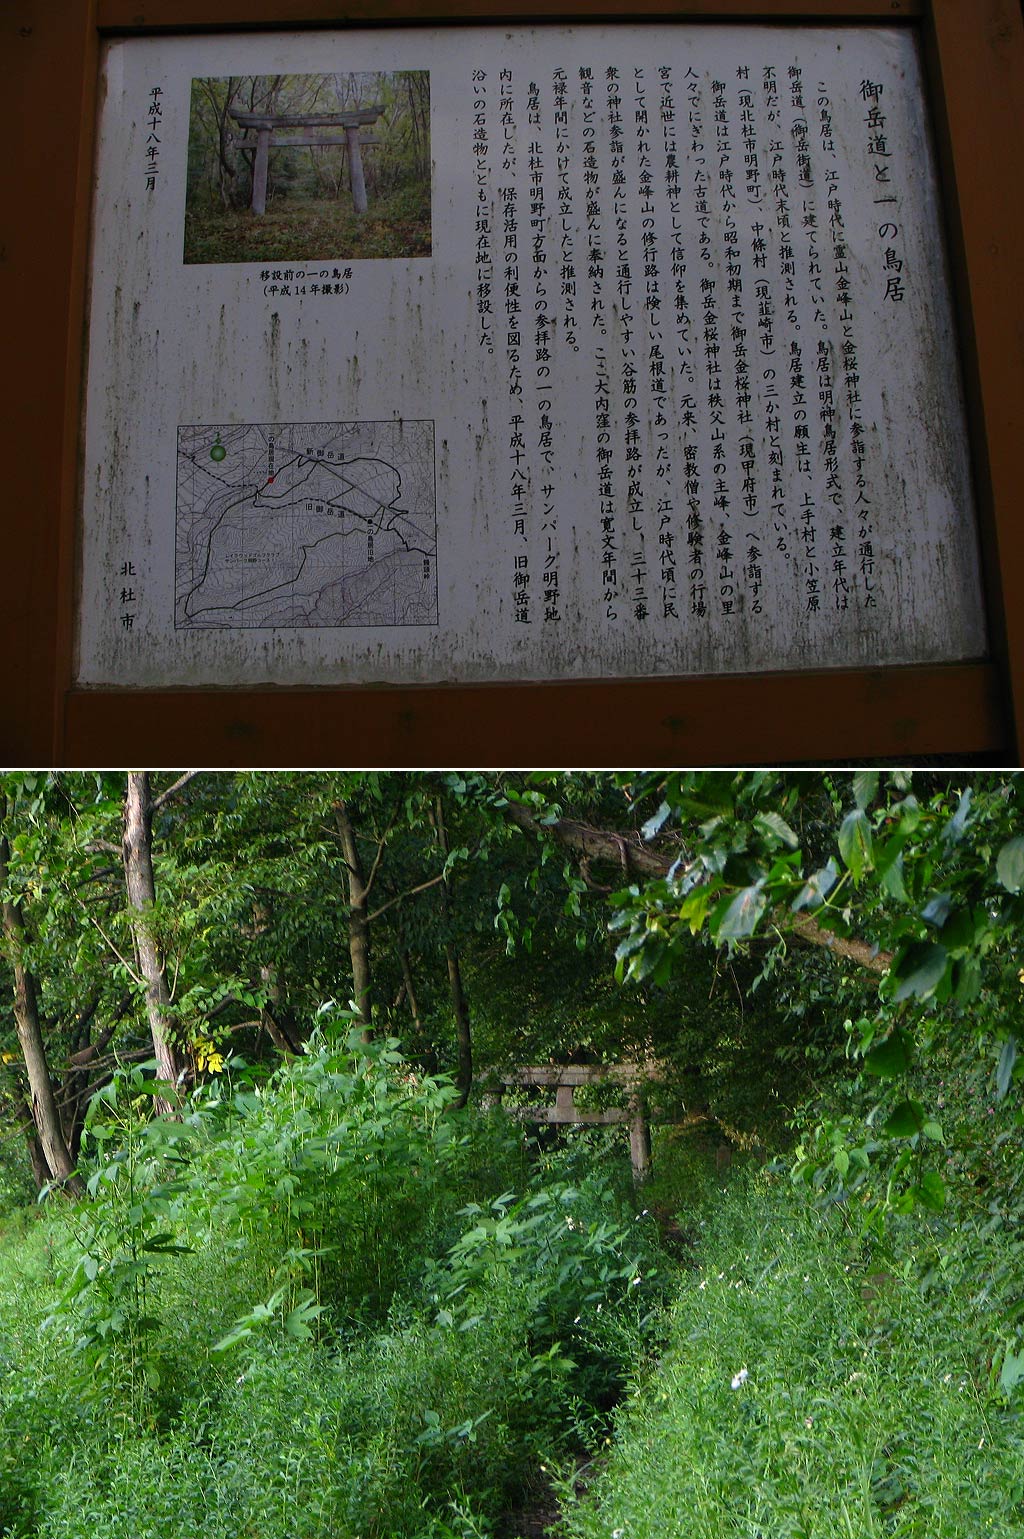 御岳道と一の鳥居
この鳥居は、江戸時代に霊山金峰山と金桜神社に参詣する人々が通行した
御岳道（御岳街道）に建てられていた。鳥居は明神鳥居形式で、建立年代は
不明だが、江戸時代末頃と推測される。鳥居建立の願主は、上手村と小笠原
村（現北杜市明野町）、中條村（現韮崎市）の三か村と刻まれている。
御岳道は江戸時代から昭和初期まで御岳金桜神社（現甲府市）へ参詣する
人々でにぎわった古道である。御岳金桜神社は秩父山系の主峰、金峰山の里
宮で近世には農耕神として信仰を集めていた。元来、密教僧や修験者の行場
として開かれた金峰山の修行路は険しい尾根道であったが、江戸時代頃に民
衆の神社参詣が盛んになると通行しやすい谷筋の参拝路が成立し、三十三番
観音などの石造物が盛んに奉納された。ここ大内窪の御岳道は寛文年間から
元禄年間にかけて成立したと推測される。
鳥居は、北杜市明野町方面からの参拝路の一の鳥居で、サンパーク明野地
内に所在したが、保存活用の利便性を図るため、平成十八年三月、旧御岳道
沿いの石造物とともに現在地に移設した。
移設前の一の鳥居
(平成14年撮影)
平成十八年三月
北杜市
一の鳥居現在地
新御岳道
旧御岳道
一の鳥居旧地
饅頭峠